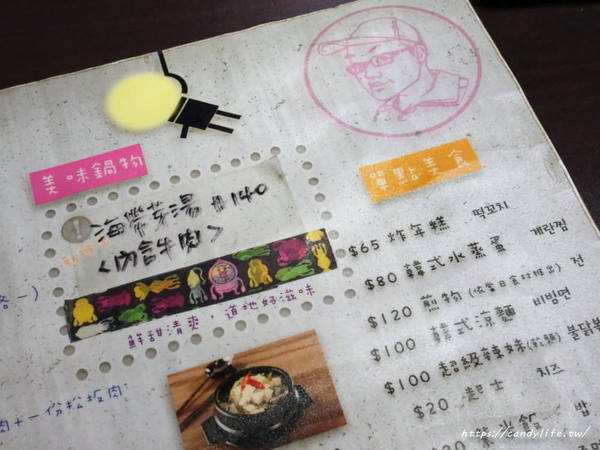 美味鍋物
海帶芽湯 $140
<內含牛肉>
鮮甜清爽，道地好滋味
單點美食
$65 炸年糕 떡꼬치
$80 韓式水蒸蛋 계란찜
$120 煎物 전
$100 韓式涼麵 비빔면
$100 超級辣妹(乾麵) 불닭볶
$20 起士 치즈
飯 밥
肉+一份松坂肉:
https://candylife.tw/